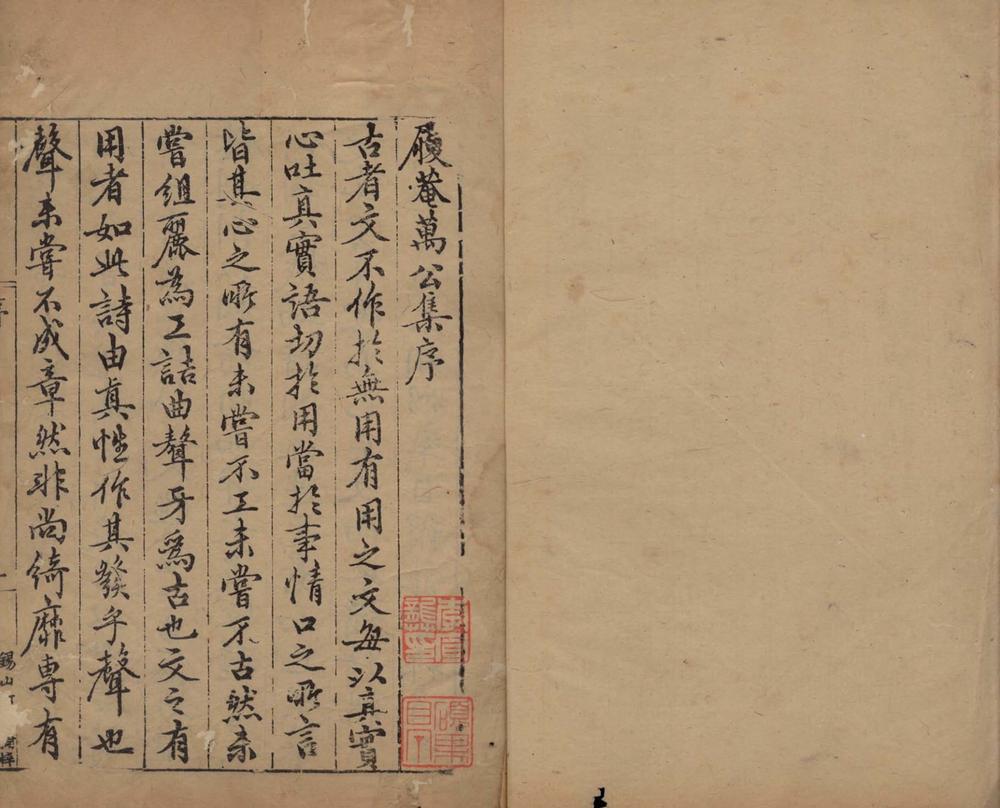 履菴萬公集序
古者文不作於無用有用之文每以真實
心吐真實語切於用當於事情口之所言
皆其心之所有未嘗不工未嘗不古然未
嘗組麗為工詰曲聱牙為古也文之有
用者如此詩由真性作其發乎聲也
聲未嘗不成章然非尚綺靡專有
序
錫山